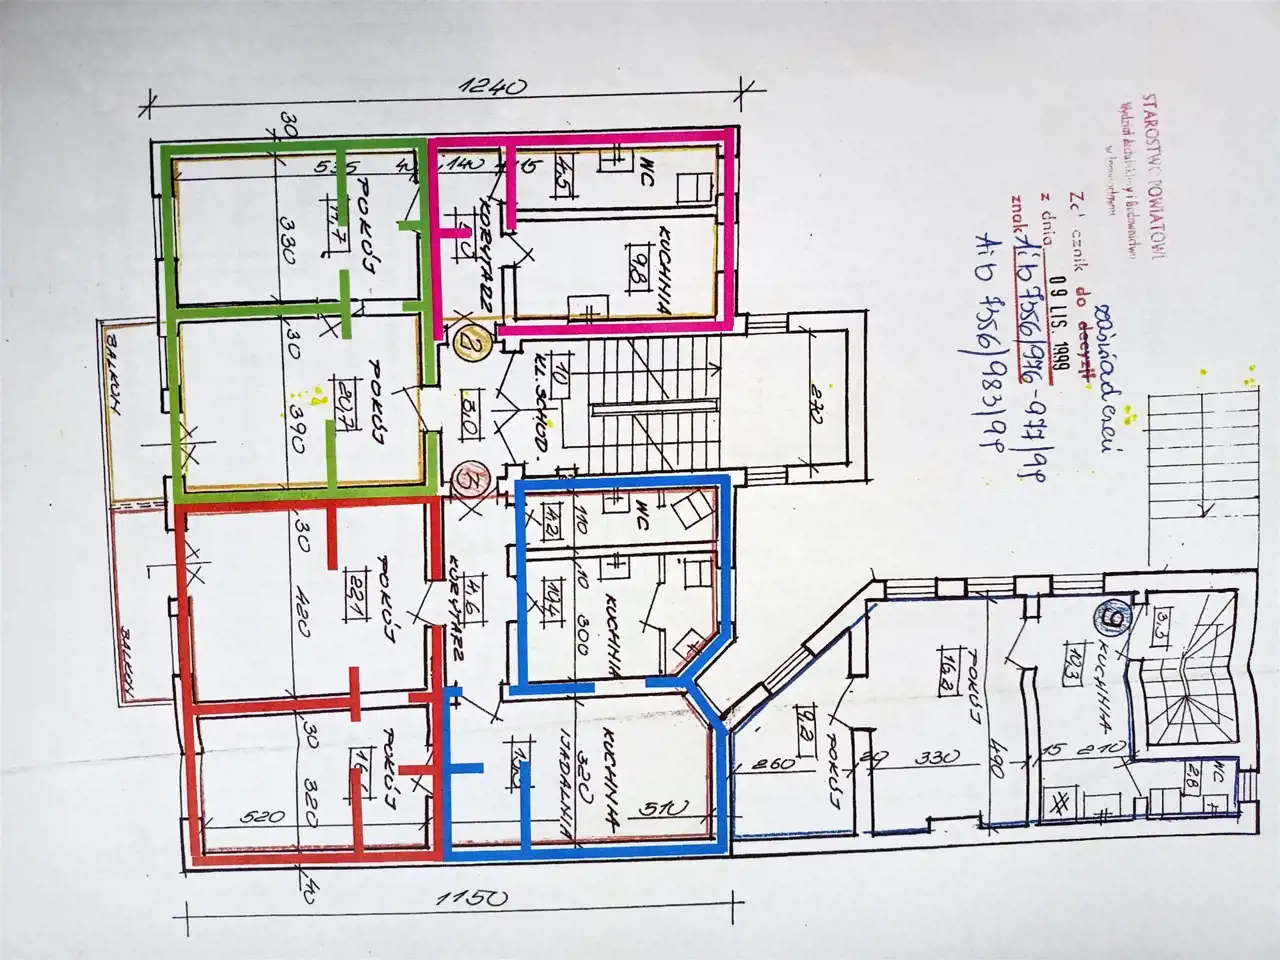 STAROSTWO POWIATOWE
Wydział Architektury i Budownictwa
Załącznik do decyzji
zaświadczeń
z dnia 09 LIS. 1999
znak Aib 7356/976-977/99
Aib 7356/983/99
1240
30
535
40
140
15
4,5
WC
POKÓJ
17,7
330
KORYTARZ
KUCHNIA
9,8
BALKON
30
390
POKÓJ
20,7
2
3,0
10
KL. SCHOD.
270
3
BALKON
30
420
22,1
POKÓJ
KORYTARZ
4,6
4,2
110
WC
10,4
10
300
KUCHNIA
30
320
POKÓJ
520
320
JADALNIA
KUCHNIA
510
40
1150
9,2
POKÓJ
260
POKÓJ
330
490
9
KUCHNIA
10,3
3,3
15
210
WC
2,8